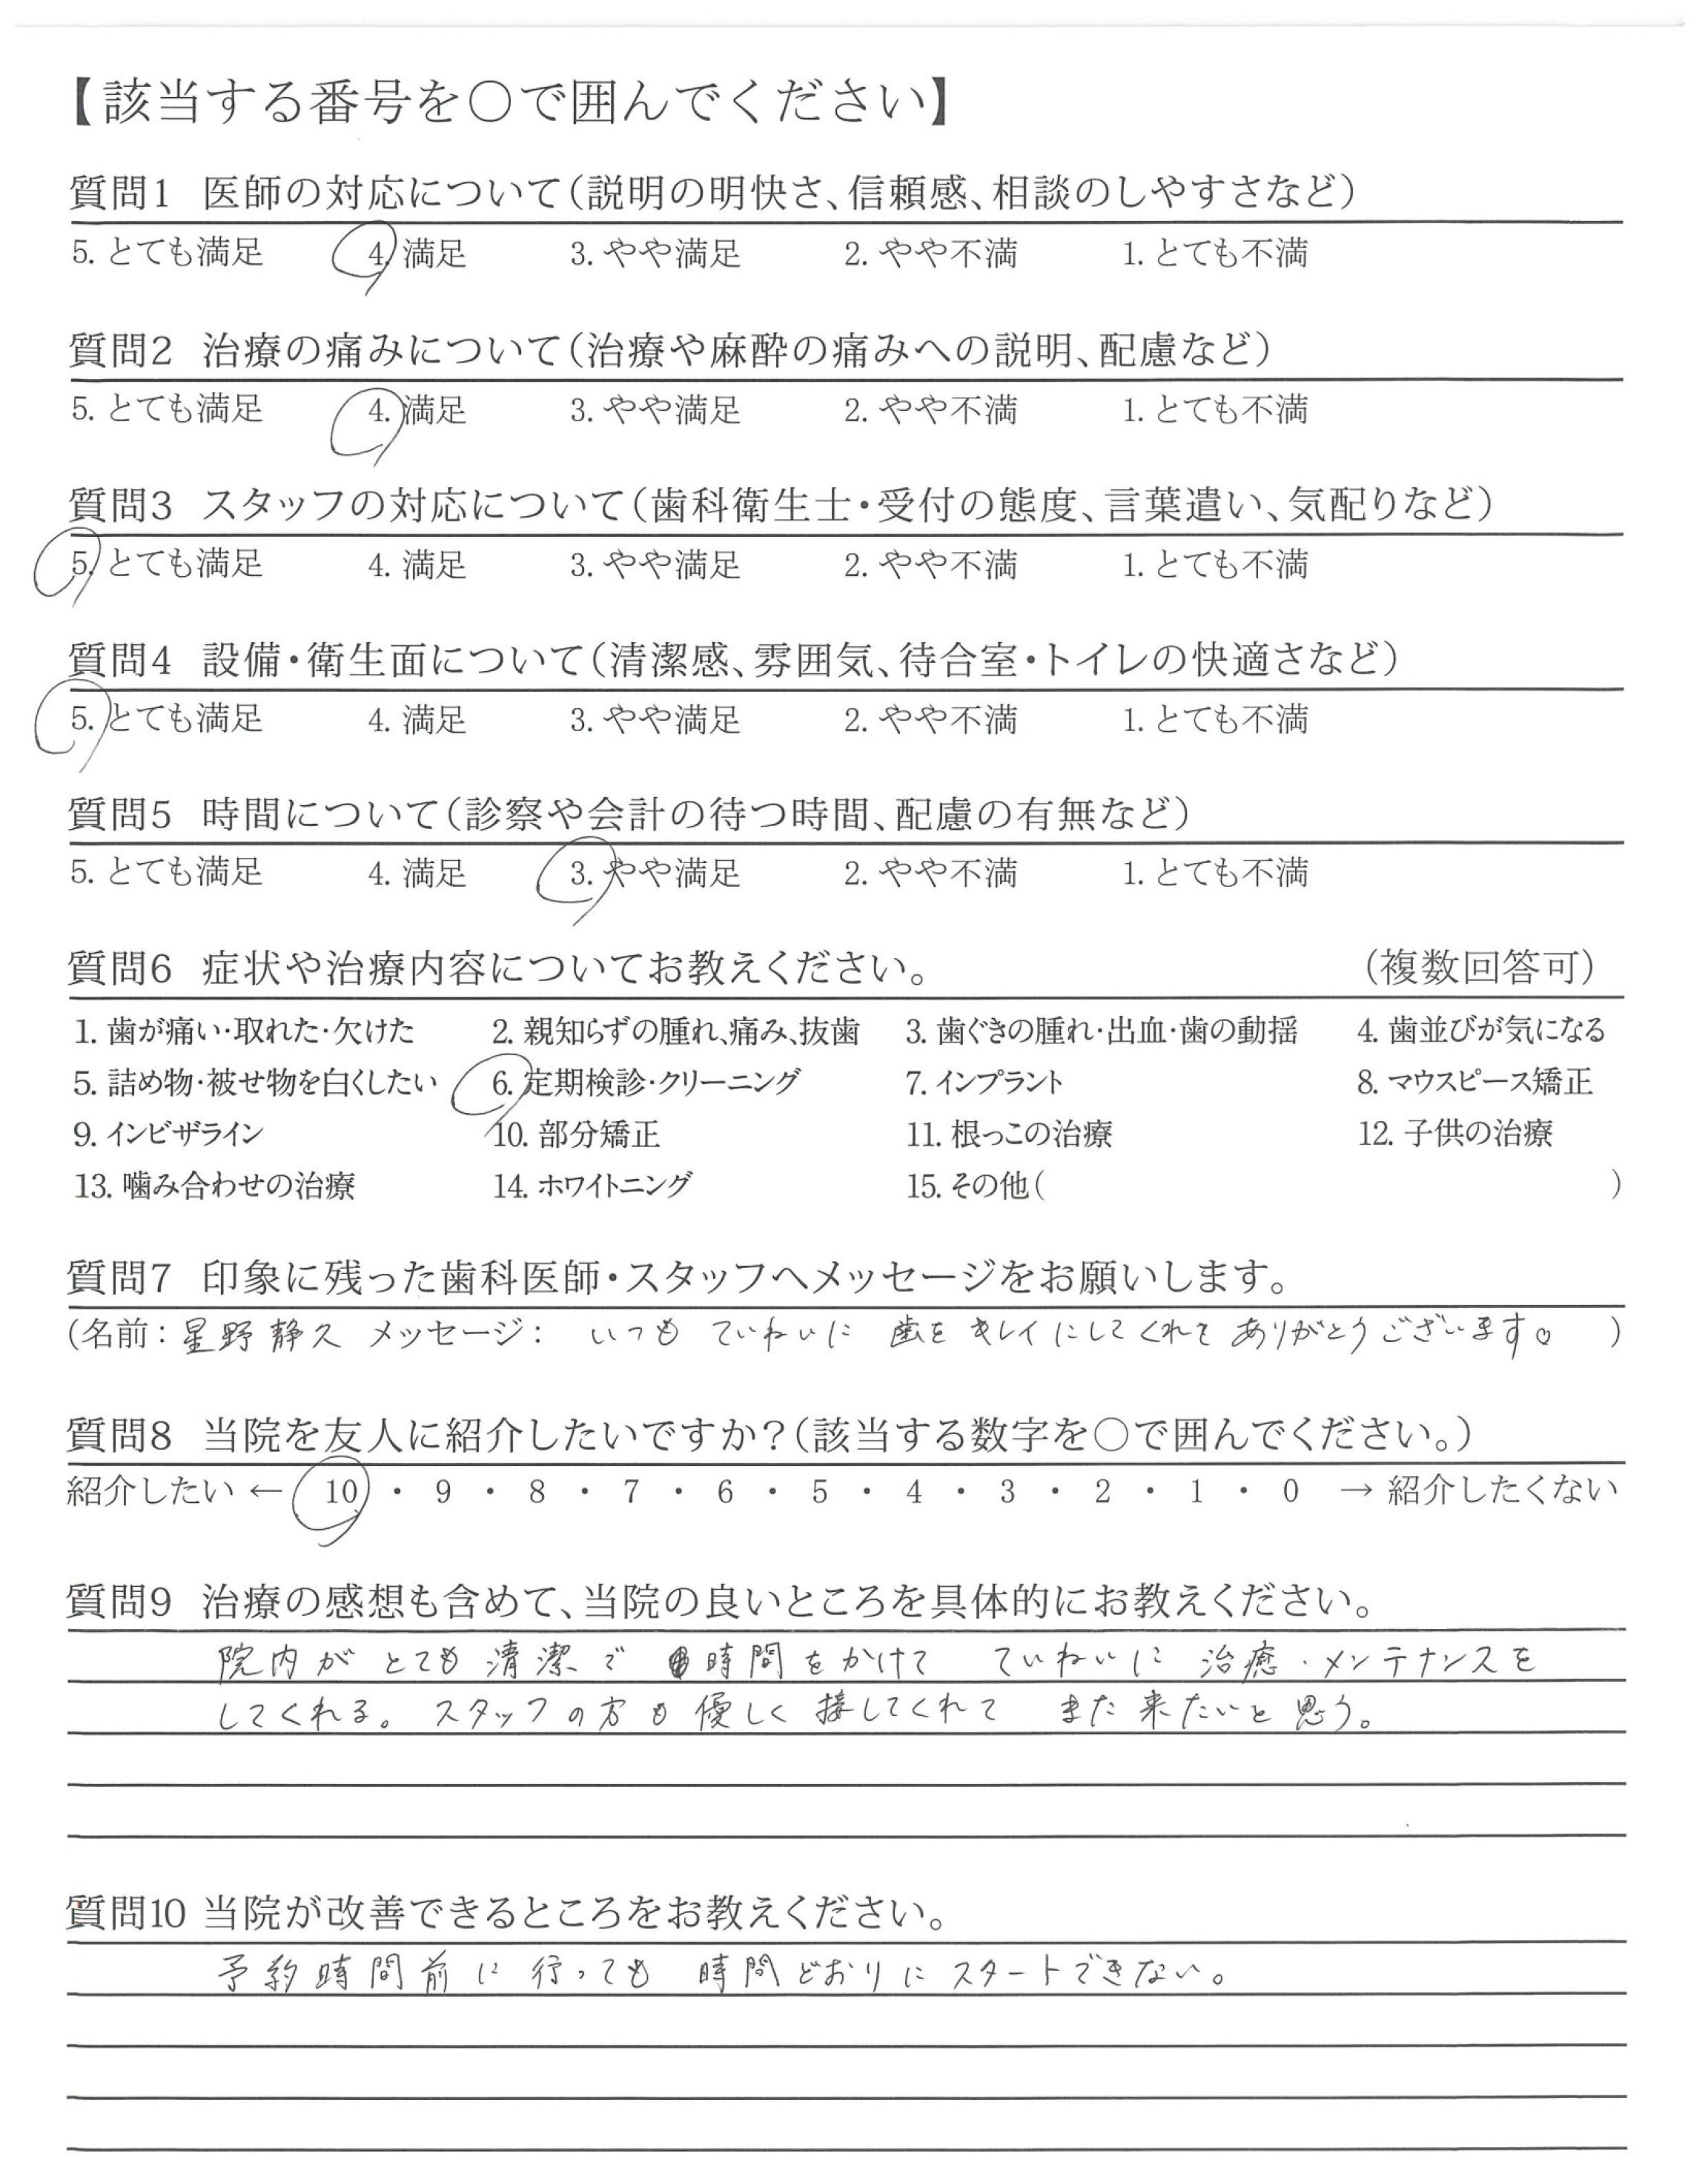 【該当する番号を〇で囲んでください】
質問1 医師の対応について(説明の明快さ、信頼感、相談のしやすさなど)
5. とても満足 4. 満足 3. やや満足 2. やや不満 1. とても不満
質問2 治療の痛みについて(治療や麻酔の痛みへの説明、配慮など)
5. とても満足 4. 満足 3. やや満足 2. やや不満 1. とても不満
質問3 スタッフの対応について(歯科衛生士・受付の態度、言葉遣い、気配りなど)
5. とても満足 4. 満足 3. やや満足 2. やや不満 1. とても不満
質問4 設備・衛生面について(清潔感、雰囲気、待合室・トイレの快適さなど)
5. とても満足 4. 満足 3. やや満足 2. やや不満 1. とても不満
質問5 時間について(診察や会計の待つ時間、配慮の有無など)
5. とても満足 4. 満足 3. やや満足 2. やや不満 1. とても不満
質問6 症状や治療内容についてお教えください。 (複数回答可)
1. 歯が痛い・取れた・欠けた 2. 親知らずの腫れ、痛み、抜歯 3. 歯ぐきの腫れ・出血・歯の動揺 4. 歯並びが気になる
5. 詰め物・被せ物を白くしたい 6. 定期検診・クリーニング 7. インプラント 8. マウスピース矯正
9. インビザライン 10. 部分矯正 11. 根っこの治療 12. 子供の治療
13. 噛み合わせの治療 14. ホワイトニング 15. その他( )
質問7 印象に残った歯科医師・スタッフへメッセージをお願いします。
(名前：星野静久 メッセージ： いつも ていねいに 歯を キレイにしてくれて ありがとうございます。 )
質問8 当院を友人に紹介したいですか?(該当する数字を〇で囲んでください。)
紹介したい ← 10 ・ 9 ・ 8 ・ 7 ・ 6 ・ 5 ・ 4 ・ 3 ・ 2 ・ 1 ・ 0 → 紹介したくない
質問9 治療の感想も含めて、当院の良いところを具体的にお教えください。
院内が とても 清潔で 時間をかけて ていねいに 治癒・メンテナンスを
してくれる。 スタッフの方も 優しく 接してくれて また 来たいと 思う。
質問10 当院が改善できるところをお教えください。
予約時間前に 行っても 時間どおりに スタートできない。